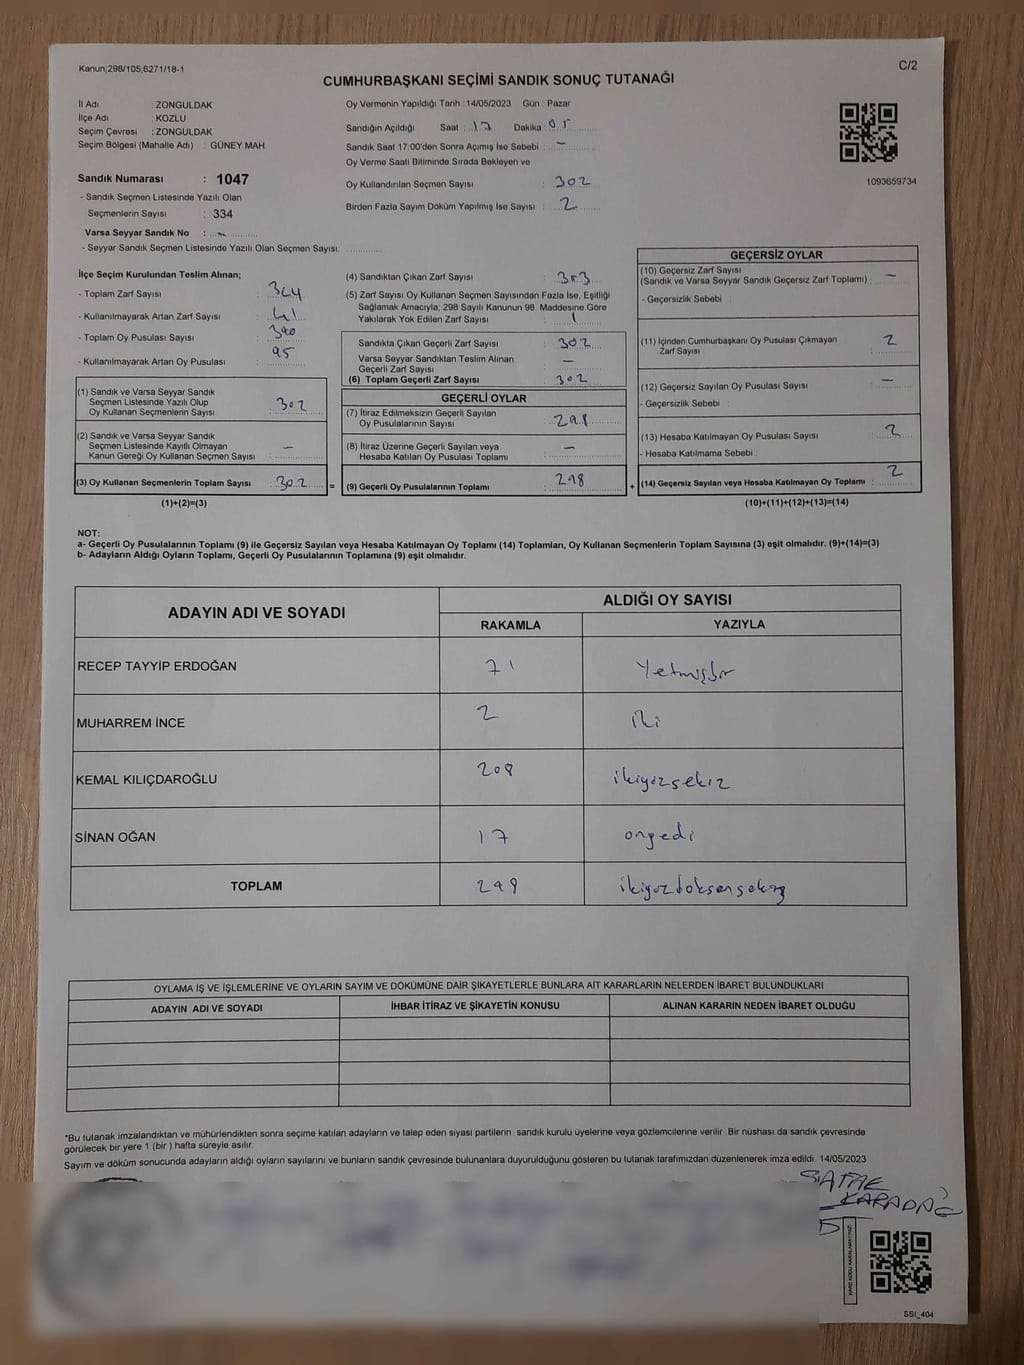 Kanun;298/105;6271/18-1
C/2
CUMHURBAŞKANI SEÇİMİ SANDIK SONUÇ TUTANAĞI
İl Adı : ZONGULDAK
İlçe Adı : KOZLU
Seçim Çevresi : ZONGULDAK
Seçim Bölgesi (Mahalle Adı) : GÜNEY MAH.
Sandık Numarası : 1047
- Sandık Seçmen Listesinde Yazılı Olan
Seçmenlerin Sayısı : 334
Varsa Seyyar Sandık No : -
- Seyyar Sandık Seçmen Listesinde Yazılı Olan Seçmen Sayısı:
Oy Vermenin Yapıldığı Tarih : 14/05/2023 Gün : Pazar
Sandığın Açıldığı Saat : 17 Dakika : 05
Sandık Saat 17:00'den Sonra Açılmış İse Sebebi : -
Oy Verme Saati Bitiminde Sırada Bekleyen ve
Oy Kullandırılan Seçmen Sayısı : 302
Birden Fazla Sayım Döküm Yapılmış İse Sayısı : 2
1093659734
İlçe Seçim Kurulundan Teslim Alınan;
- Toplam Zarf Sayısı : 344
- Kullanılmayarak Artan Zarf Sayısı : 41
- Toplam Oy Pusulası Sayısı :
- Kullanılmayarak Artan Oy Pusulası : 95
(1) Sandık ve Varsa Seyyar Sandık
Seçmen Listesinde Yazılı Olup
Oy Kullanan Seçmenlerin Sayısı : 302
(2) Sandık ve Varsa Seyyar Sandık
Seçmen Listesinde Kayıtlı Olmayan
Kanun Gereği Oy Kullanan Seçmen Sayısı : -
(3) Oy Kullanan Seçmenlerin Toplam Sayısı : 302 =
(1)+(2)=(3)
(4) Sandıktan Çıkan Zarf Sayısı : 303
(5) Zarf Sayısı Oy Kullanan Seçmen Sayısından Fazla İse, Eşitliği
Sağlamak Amacıyla, 298 Sayılı Kanunun 98. Maddesine Göre
Yakılarak Yok Edilen Zarf Sayısı : 1
Sandıkta Çıkan Geçerli Zarf Sayısı : 302
Varsa Seyyar Sandıktan Teslim Alınan
Geçerli Zarf Sayısı : -
(6) Toplam Geçerli Zarf Sayısı : 302
GEÇERLİ OYLAR
(7) İtiraz Edilmeksizin Geçerli Sayılan
Oy Pusulalarının Sayısı : 298
(8) İtiraz Üzerine Geçerli Sayılan veya
Hesaba Katılan Oy Pusulası Toplamı : -
(9) Geçerli Oy Pusulalarının Toplamı : 298 +
GEÇERSİZ OYLAR
(10) Geçersiz Zarf Sayısı
(Sandık ve Varsa Seyyar Sandık Geçersiz Zarf Toplamı) : -
- Geçersizlik Sebebi :
(11) İçinden Cumhurbaşkanı Oy Pusulası Çıkmayan
Zarf Sayısı : 2
(12) Geçersiz Sayılan Oy Pusulası Sayısı : -
- Geçersizlik Sebebi :
(13) Hesaba Katılmayan Oy Pusulası Sayısı : 2
- Hesaba Katılmama Sebebi :
(14) Geçersiz Sayılan veya Hesaba Katılmayan Oy Toplamı : 2
(10)+(11)+(12)+(13)=(14)
NOT:
a- Geçerli Oy Pusulalarının Toplamı (9) ile Geçersiz Sayılan veya Hesaba Katılmayan Oy Toplamı (14) Toplamları, Oy Kullanan Seçmenlerin Toplam Sayısına (3) eşit olmalıdır. (9)+(14)=(3)
b- Adayların Aldığı Oyların Toplamı, Geçerli Oy Pusulalarının Toplamına (9) eşit olmalıdır.
ADAYIN ADI VE SOYADI
ALDIĞI OY SAYISI
RAKAMLA YAZIYLA
RECEP TAYYİP ERDOĞAN 71 Yetmişbir
MUHARREM İNCE 2 iki
KEMAL KILIÇDAROĞLU 208 ikiyüzsekiz
SİNAN OĞAN 17 onyedi
TOPLAM 298 ikiyüzdoksansekiz
OYLAMA İŞ VE İŞLEMLERİNE VE OYLARIN SAYIM VE DÖKÜMÜNE DAİR ŞİKAYETLERLE BUNLARA AİT KARARLARIN NELERDEN İBARET BULUNDUKLARI
ADAYIN ADI VE SOYADI İHBAR İTİRAZ VE ŞİKAYETİN KONUSU ALINAN KARARIN NEDEN İBARET OLDUĞU
*Bu tutanak imzalandıktan ve mühürlendikten sonra seçime katılan adayların ve talep eden siyasi partilerin sandık kurulu üyelerine veya gözlemcilerine verilir. Bir nüshası da sandık çevresinde
görülecek bir yere 1 (bir) hafta süreyle asılır.
Sayım ve döküm sonucunda adayların aldığı oyların sayılarını ve bunların sandık çevresinde bulunanlara duyurulduğunu gösteren bu tutanak tarafımızdan düzenlenerek imza edildi. 14/05/2023
KARADAĞ
KARE KODU KARALAMAYINIZ!
SSI_404